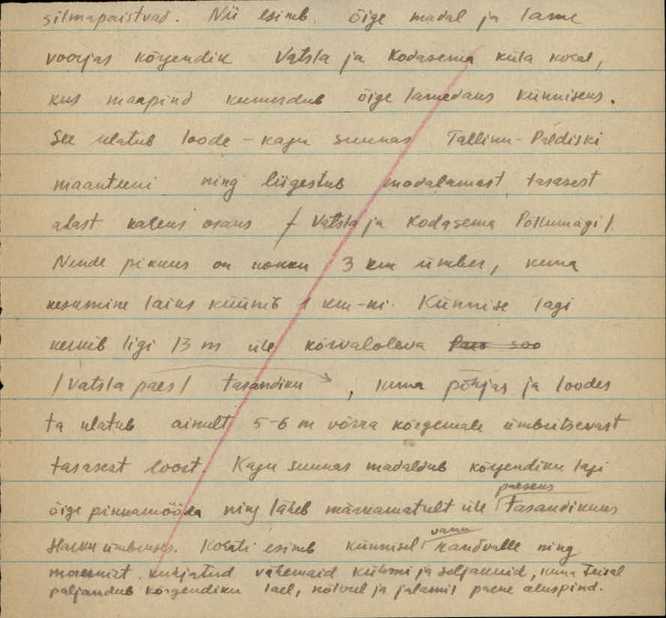 silmapaistvad. Nii esineb õige madal ja lame
voorjas kõrgendik Vatsla ja Kodasema küla kohal,
kus maapind kumerdub õige lamedaks künniseks.
See ulatub loode - kagu suunas Tallinn - Paldiski
maanteeni ning liigestub madalamast tasasest
alast kaheks osaks / Vatsla ja Kodasema Põllumägi /.
Nende pikkus on kokku 3 km ümber, kuna
keskmine laius küünib 1 km-ni. Künnise lagi
kerkib ligi 13 m üle kõrvaloleva soo
/ Vatsla paes / tasandiku, kuna põhjas ja loodes
ta ulatub ainult 5-6 m võrra kõrgemale ümbritsevast
tasasest soost. Kagu suunas madaldub kõrgendiku lagi
paeseks
õige pikkamööda ning läheb märkamatult üle tasandikuks
Harku ümbruses. Kohati esineb künnisel vanu randvalle ning
merest kuhjatud vähemaid kühme ja seljakuid, kuna teisal
paljandub kõrgendiku lael, nõlvul ja jalamil paene aluspind.